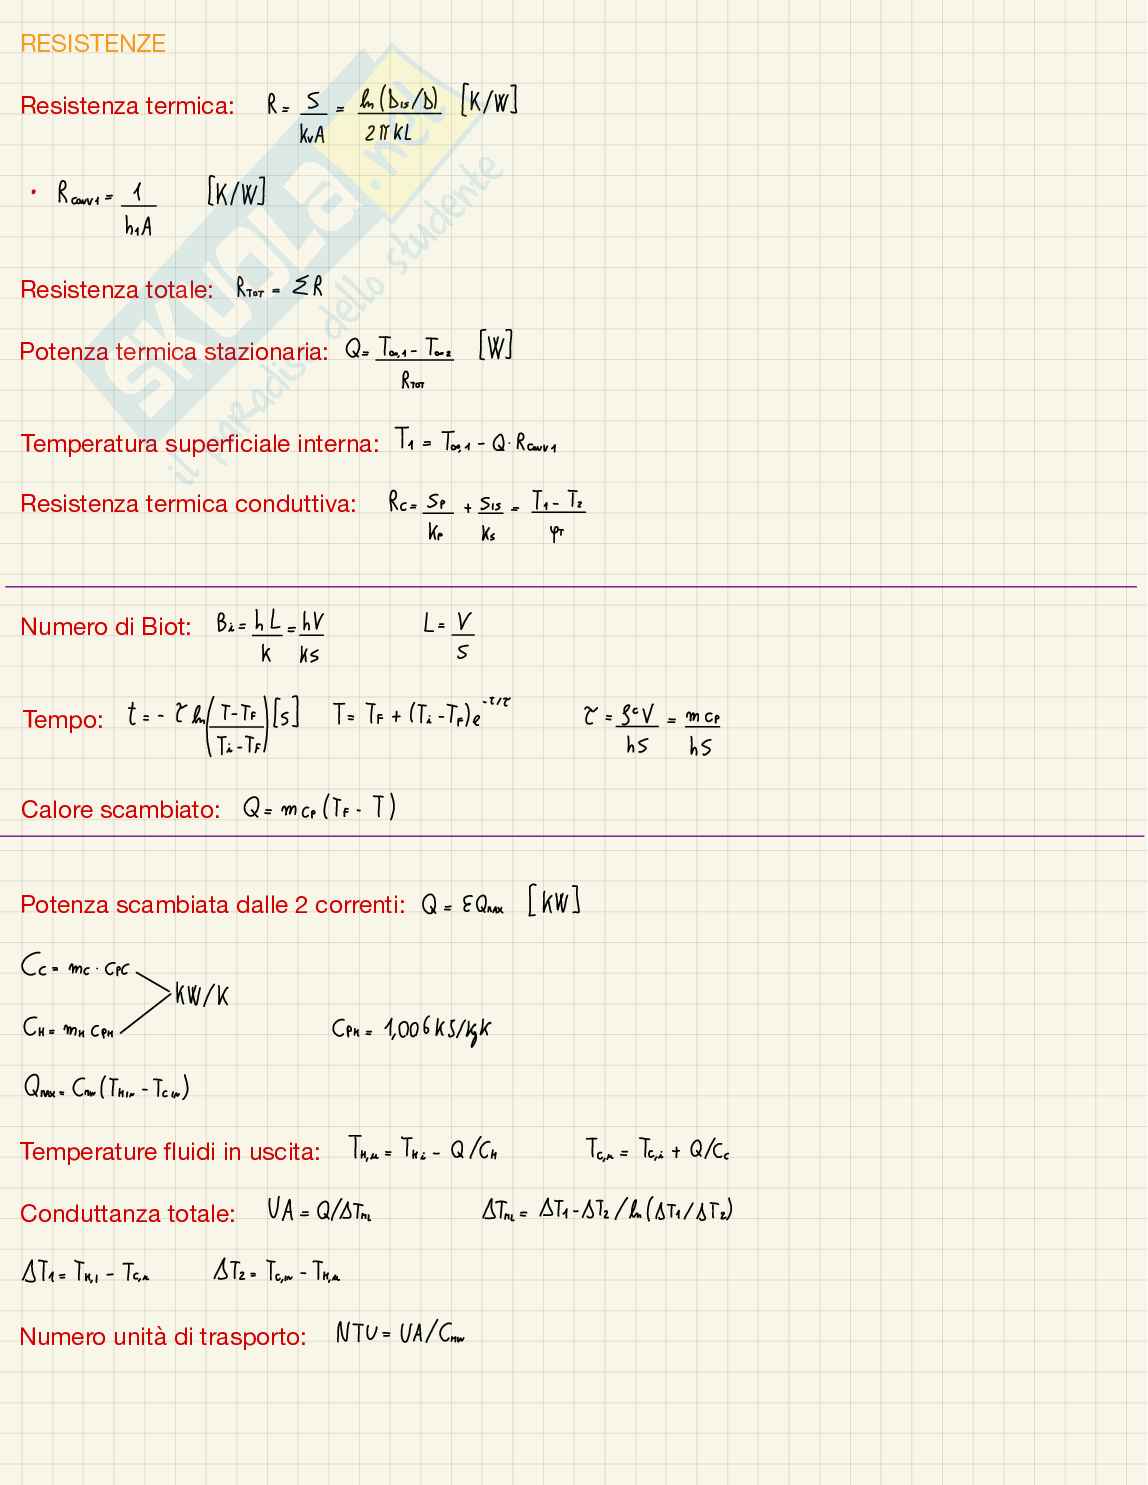 RESISTENZE
Resistenza termica: R = S/(kvA) = ln(Dis/D)/(2πkL) [K/W]
• Rconv1 = 1/(h1A) [K/W]
Resistenza totale: RTOT = ΣR
Potenza termica stazionaria: Q = (T∞,1 - T∞2)/RTOT [W]
Temperatura superficiale interna: T1 = T∞,1 - Q · Rconv1
Resistenza termica conduttiva: Rc = SP/KP + SIS/KS = (T1 - T2)/φT
Numero di Biot: Bi = hL/K = hV/KS L = V/S
Tempo: t = - τ ln((T-TF)/(Ti-TF)) [S] T = TF + (Ti - TF)e^-τ/τ τ = ρcV/hS = mcP/hS
Calore scambiato: Q = mcP (TF - T)
Potenza scambiata dalle 2 correnti: Q = εQmax [KW]
CC = mC · CPC
KW/K
CH = mH CPH CPH = 1,006 KJ/KgK
Qmax = Cmin (THin - TCin)
Temperature fluidi in uscita: TH,u = THi - Q/CH TC,u = TC,i + Q/CC
Conduttanza totale: UA = Q/ΔTmL ΔTmL = ΔT1 - ΔT2 / ln(ΔT1/ΔT2)
ΔT1 = TH,i - TC,u ΔT2 = TC,in - TH,u
Numero unità di trasporto: NTU = UA/Cmin
SKUOLA.net
il paradiso dello studente